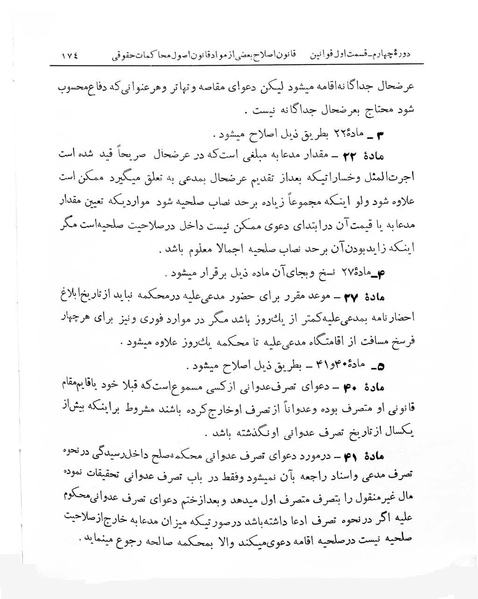 دورهٔ چهارم ـ قسمت اول قوانین    قانون اصلاح بعضی از مواد قانون اصول محاکمات حقوقی    ۱۷۴
عرضحال جداگانه اقامه میشود لیکن دعوای مقاصه و تهاتر و هر عنوانی که دفاع محسوب
شود محتاج بعرضحال جداگانه نیست .
۳ ـ مادهٔ ۲۲ بطریق ذیل اصلاح میشود .
مادهٔ ۲۲ ـ مقدار مدعابه مبلغی است که در عرضحال صریحاً قید شده است
اجرت المثل و خساراتیکه بعد از تقدیم عرضحال بمدعی به تعلق میگیرد ممکن است
علاوه شود ولو اینکه مجموعاً زیاده بر حد نصاب صلحیه شود مواردیکه تعیین مقدار
مدعابه یا قیمت آن در ابتدای دعوی ممکن نیست داخل در صلاحیت صلحیه است مگر
اینکه زاید بودن آن بر حد نصاب صلحیه اجمالا معلوم باشد .
۴ ـ مادهٔ ۲۷ نسخ و بجای آن ماده ذیل برقرار میشود .
مادهٔ ۲۷ ـ موعد مقرر برای حضور مدعی علیه در محکمه نباید از تاریخ ابلاغ
احضارنامه بمدعی علیه کمتر از یک روز باشد مگر در موارد فوری و نیز برای هر چهار
فرسخ مسافت از اقامتگاه مدعی علیه تا محکمه یک روز علاوه میشود .
۵ ـ مادهٔ ۴۰ و ۴۱ ـ بطریق ذیل اصلاح میشود .
مادهٔ ۴۰ ـ دعوای تصرف عدوانی از کسی مسموع است که قبلا خود یا قایم مقام
قانونی او متصرف بوده و عدواناً از تصرف او خارج کرده باشند مشروط بر اینکه بیش از
یکسال از تاریخ تصرف عدوانی او نگذشته باشد .
مادهٔ ۴۱ ـ در مورد دعوای تصرف عدوانی محکمه صلح داخل رسیدگی در نحوه
تصرف مدعی و اسناد راجعه بآن نمیشود و فقط در باب تصرف عدوانی تحقیقات نموده
مال غیر منقول را بتصرف متصرف اول میدهد و بعد از ختم دعوای تصرف عدوانی محکوم
علیه اگر در نحوه تصرف ادعا داشته باشد در صورتیکه میزان مدعابه خارج از صلاحیت
صلحیه نیست در صلحیه اقامه دعوی میکند والا بمحکمه صالحه رجوع مینماید .